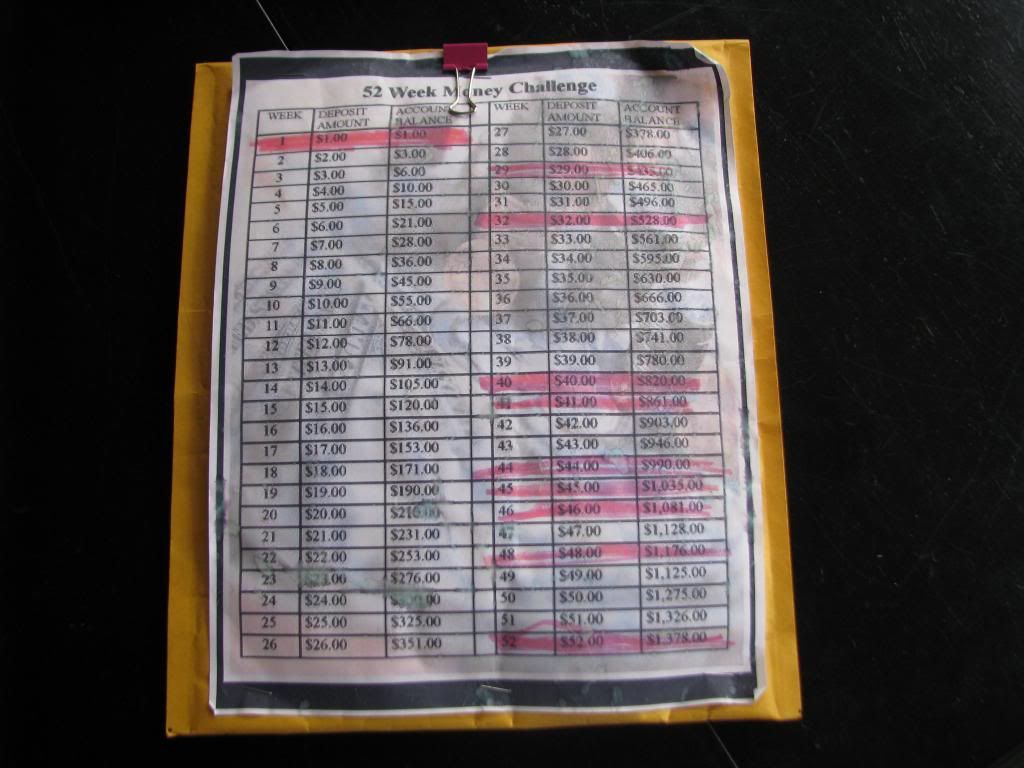 52 Week Money Challenge
WEEK DEPOSIT AMOUNT ACCOUNT BALANCE WEEK DEPOSIT AMOUNT ACCOUNT BALANCE
1 $1.00 $1.00 27 $27.00 $378.00
2 $2.00 $3.00 28 $28.00 $406.00
3 $3.00 $6.00 29 $29.00 $435.00
4 $4.00 $10.00 30 $30.00 $465.00
5 $5.00 $15.00 31 $31.00 $496.00
6 $6.00 $21.00 32 $32.00 $528.00
7 $7.00 $28.00 33 $33.00 $561.00
8 $8.00 $36.00 34 $34.00 $595.00
9 $9.00 $45.00 35 $35.00 $630.00
10 $10.00 $55.00 36 $36.00 $666.00
11 $11.00 $66.00 37 $37.00 $703.00
12 $12.00 $78.00 38 $38.00 $741.00
13 $13.00 $91.00 39 $39.00 $780.00
14 $14.00 $105.00 40 $40.00 $820.00
15 $15.00 $120.00 41 $41.00 $861.00
16 $16.00 $136.00 42 $42.00 $903.00
17 $17.00 $153.00 43 $43.00 $946.00
18 $18.00 $171.00 44 $44.00 $990.00
19 $19.00 $190.00 45 $45.00 $1,035.00
20 $20.00 $210.00 46 $46.00 $1,081.00
21 $21.00 $231.00 47 $47.00 $1,128.00
22 $22.00 $253.00 48 $48.00 $1,176.00
23 $23.00 $276.00 49 $49.00 $1,125.00
24 $24.00 50 $50.00 $1,275.00
25 $25.00 $325.00 51 $51.00 $1,326.00
26 $26.00 $351.00 52 $52.00 $1,378.00